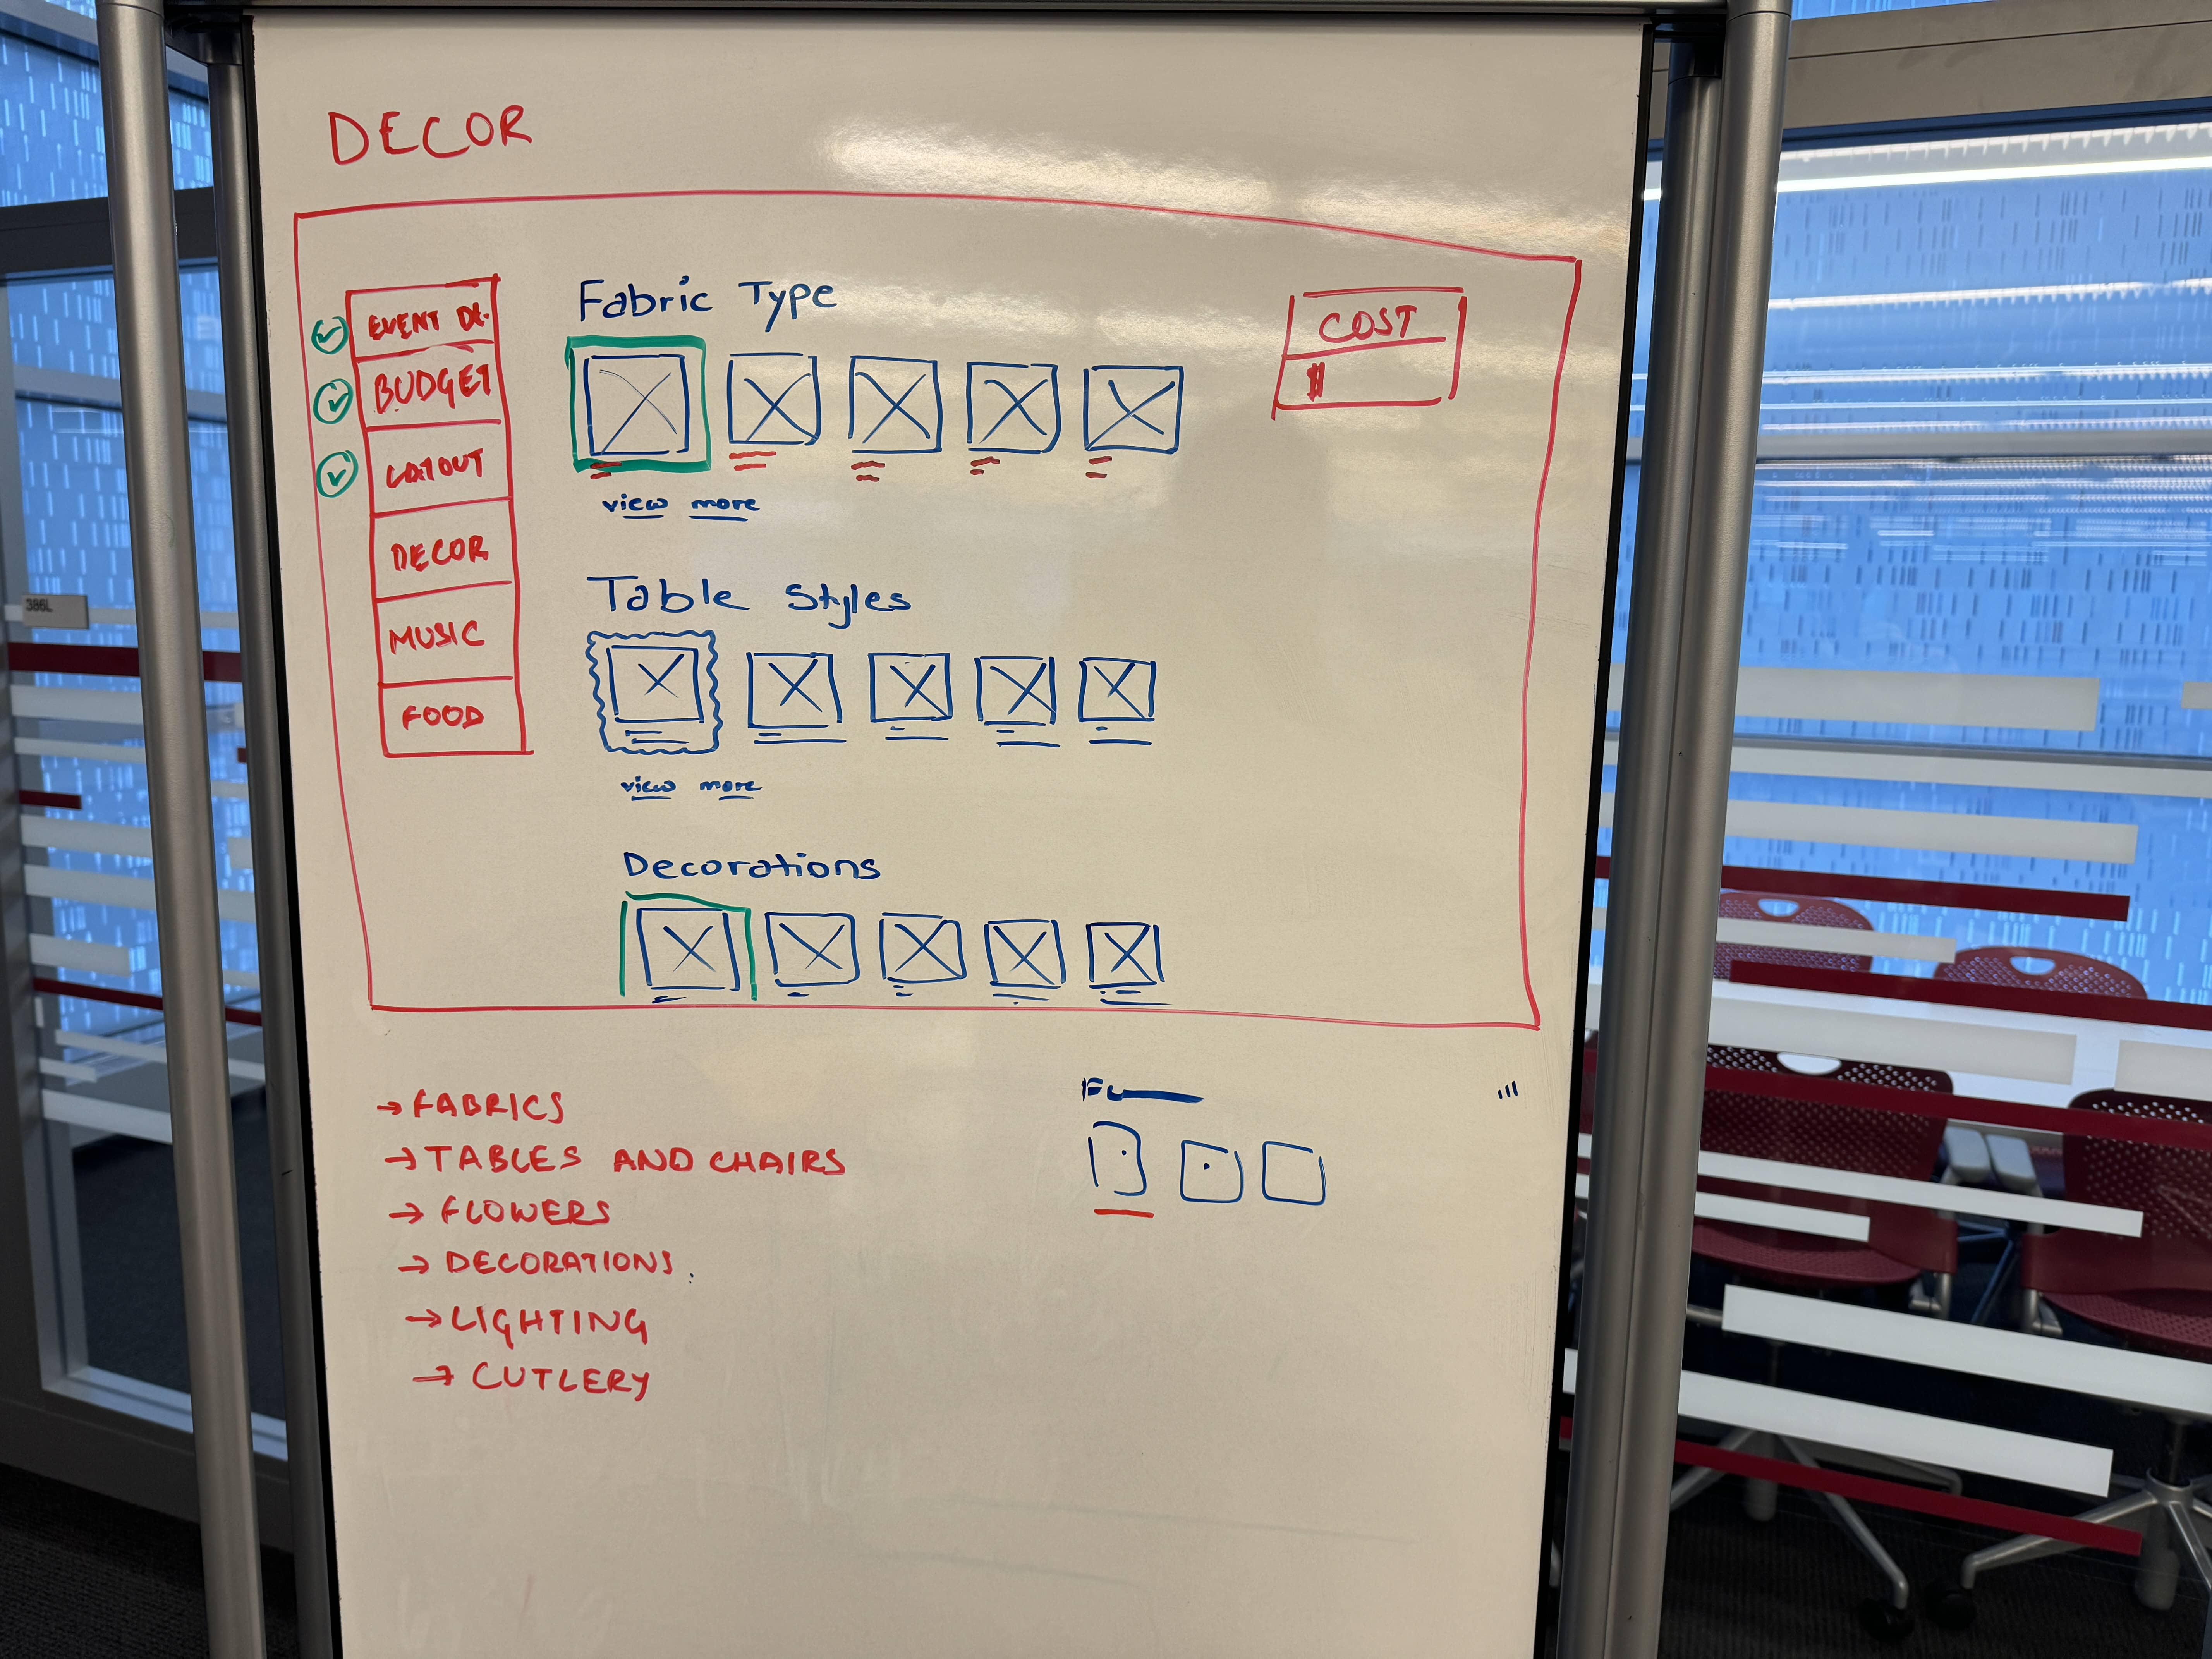 DECOR
EVENT DE.
BUDGET
LAYOUT
DECOR
MUSIC
FOOD
Fabric Type
view more
Table Styles
view more
Decorations
COST
$
→ FABRICS
→ TABLES AND CHAIRS
→ FLOWERS
→ DECORATIONS.
→ LIGHTING
→ CUTLERY
386L